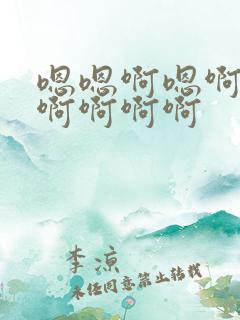 嗯嗯啊嗯啊
啊啊啊啊
李凉
未经同意禁止转载